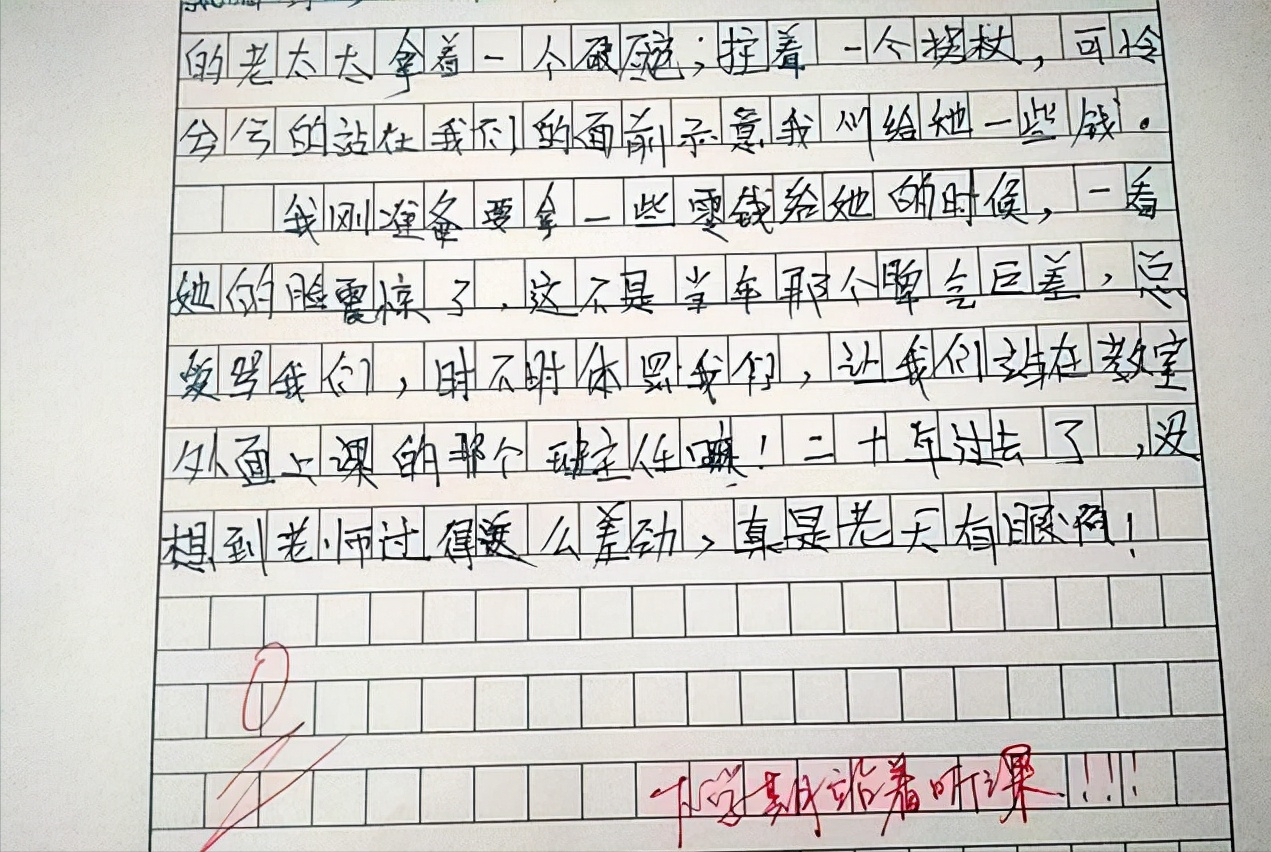 的老太太拿着一个破碗；拄着一个拐杖，可怜
兮兮的站在我们的面前示意我们给她一些钱。
我刚准备要拿一些零钱给她的时候，一看
她的脸震惊了，这不是当年那个脾气巨差，总
爱骂我们，时不时体罚我们，让我们站在教室
外面上课的那个班主任嘛！二十年过去了，没
想到老师过得这么差劲，真是老天有眼啊！
0
下学期站着听课！！！